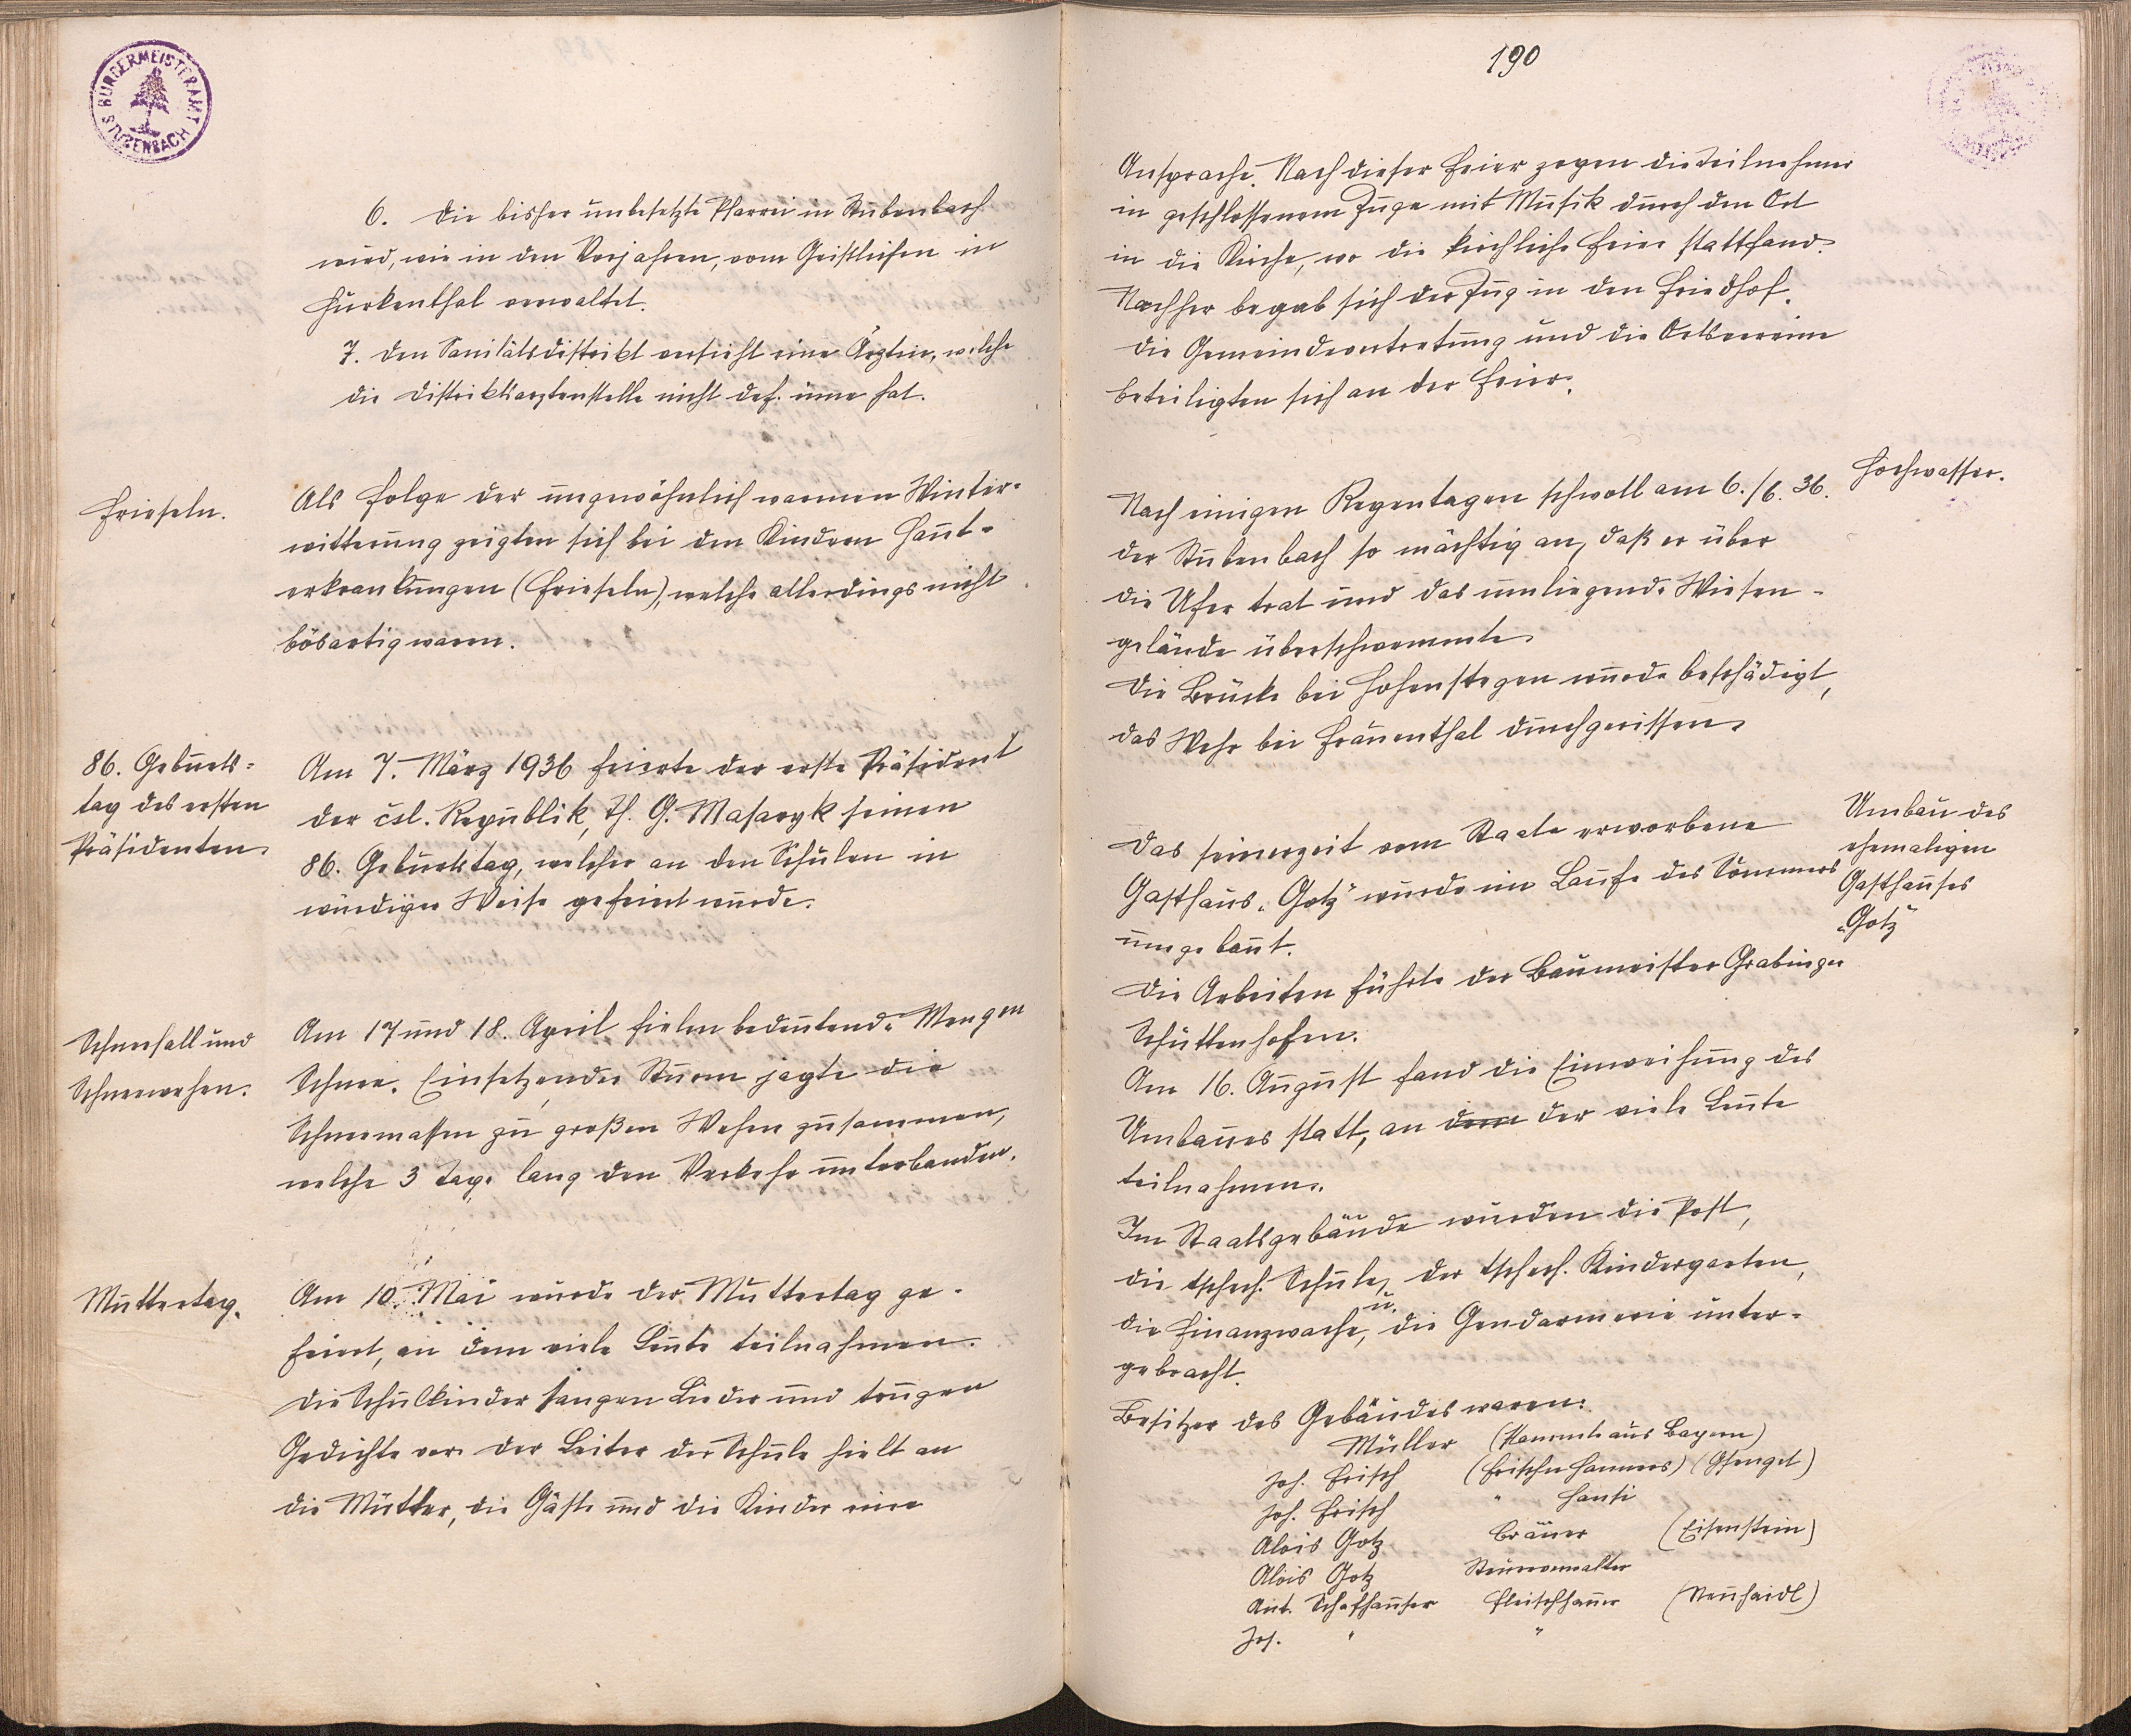 BÜRGERMEISTERAMT STUBENBACH
6. Die bisher unbesetzte Pfarrei in Stubenbach
wird, wie in den Vorjahren, vom Geistlichen in
Gurkenthal verwaltet.
7. Den Sanitätsdistrikt versieht eine Ärztin, welche
die Distriktsarztenstelle nicht def. inne hat.
Frieseln.
Als Folge der ungewöhnlich warmen Winter-
witterung zeigten sich bei den Kindern Haut-
erkrankungen (Frieseln), welche allerdings nicht
bösartig waren.
86. Geburts-
tag des ersten
Präsidenten
Am 7. März 1936 feierte der erste Präsident
der čsl. Republik, Th. G. Masaryk seinen
86. Geburtstag, welcher an den Schulen in
würdiger Weise gefeiert wurde.
Schneefall und
Schneewehen.
Am 17 und 18. April fielen bedeutende Mengen
Schnee. Einsetzender Sturm jagte die
Schneemassen zu großen Wehen zusammen,
welche 3 Tage lang den Verkehr unterbanden.
Muttertag.
Am 10. Mai wurde der Muttertag ge-
feiert, an dem viele Leute teilnahmen.
Die Schulkinder sangen Lieder und trugen
Gedichte vor. Der Leiter der Schule hielt an
die Mütter, die Gäste und die Kinder eine
190
Ansprache. Nach dieser Feier zogen die Teilnehmer
in geschlossenem Zuge mit Musik durch den Ort
in die Kirche, wo die kirchliche Feier stattfand.
Nachher begab sich der Zug in den Friedhof.
Die Gemeindevertretung und die Ortsvereine
beteiligten sich an der Feier.
Hochwasser.
Nach einigen Regentagen schwoll am 6./6. 36.
der Stubenbach so mächtig an, daß er über
die Ufer trat und das umliegende Wiesen-
gelände überschwemmte.
Die Brücke bei Hohenstegen wurde beschädigt,
das Wehr bei Frauenthal durchgerissen.
Umbau des
ehemaligen
Gasthauses
„Gotz"
Das seinerzeit vom Staate erworbene
Gasthaus „Gotz" wurde im Laufe des Sommers
umgebaut.
Die Arbeiten führte der Baumeister Grabinger
Schüttenhofen.
Am 16. August fand die Einweihung des
Umbaues statt, an dem der viele Leute
teilnahmen.
Im Staatsgebäude wurden die Post,
die tschech. Schule, der tschech. Kindergarten,
die Finanzwache, u. die Gendarmerie unter-
gebracht.
Besitzer des Gebäudes waren:
Müller (stammte aus Bayern)
Joh. Frisch (Frischn Hannes) (Gsenget)
Joh. Frisch " Hansi
Alois Gotz Bräuer (Eisenstein)
Alois Gotz Steuerverwalter
Ant. Schafhauser Fleischhauer (Neuhaidl)
Jos. " "